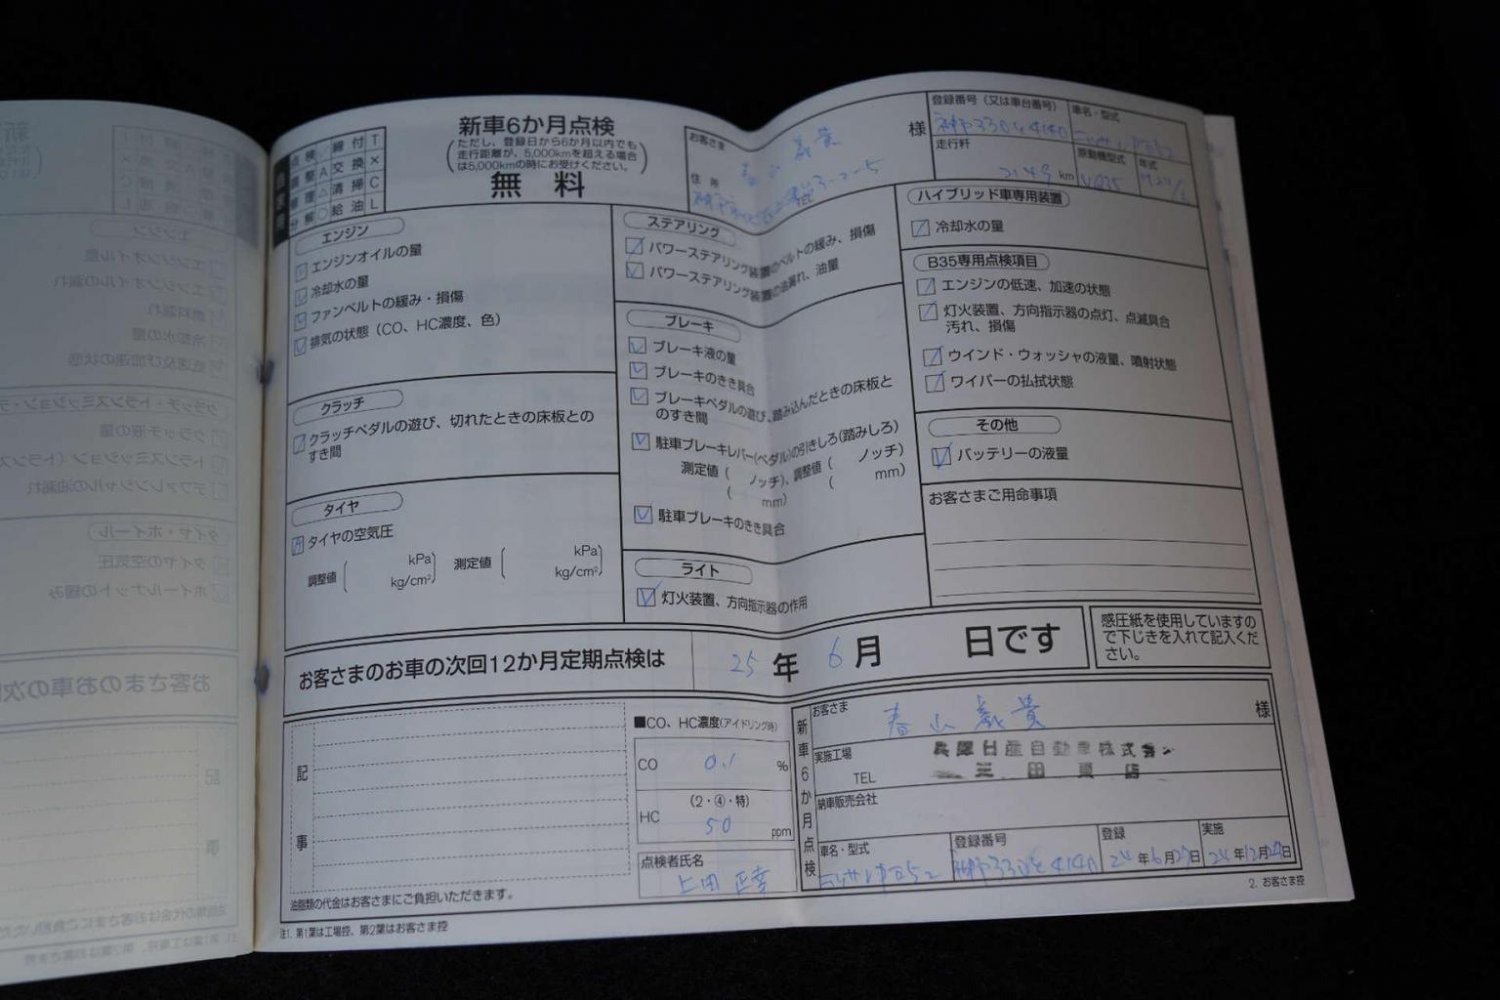 新車6か月点検
(ただし、登録日から6か月以内でも
走行距離が、5,000kmを超える場合
は5,000kmの時にお受けください。)
無料
点検 レ 締付 T
調整 A 交換 ×
修理 △ 清掃 C
分解 ○ 給油 L
お客さま
春山 義貴 様
住所
TEL
登録番号(又は車台番号)
車名・型式
走行粁
km
原動機型式
年式
エンジン
エンジンオイルの量
冷却水の量
ファンベルトの緩み・損傷
排気の状態(CO、HC濃度、色)
クラッチ
クラッチペダルの遊び、切れたときの床板との
すき間
タイヤ
タイヤの空気圧
調整値 ( kPa kg/cm² ) 測定値 ( kPa kg/cm² )
ステアリング
パワーステアリング装置のベルトの緩み、損傷
パワーステアリング装置の油漏れ、油量
ブレーキ
ブレーキ液の量
ブレーキのきき具合
ブレーキペダルの遊び、踏み込んだときの床板と
のすき間
駐車ブレーキレバー(ペダル)の引きしろ(踏みしろ)
測定値 ( ノッチ)、調整値 ( ノッチ)
( mm) ( mm)
駐車ブレーキのきき具合
ライト
灯火装置、方向指示器の作用
ハイブリッド車専用装置
冷却水の量
B35専用点検項目
エンジンの低速、加速の状態
灯火装置、方向指示器の点灯、点滅具合
汚れ、損傷
ウインド・ウォッシャの液量、噴射状態
ワイパーの払拭状態
その他
バッテリーの液量
お客さまご用命事項
お客さまのお車の次回12か月定期点検は 25年 6月 日です
感圧紙を使用していますの
で下じきを入れて記入くだ
さい。
記事
■CO、HC濃度(アイドリング時)
CO 0.1 %
(2・④・特)
HC 50 ppm
点検者氏名
新車6か月点検
お客さま 春山 義貴 様
実施工場
兵庫日産自動車株式会社
三田
店
TEL
納車販売会社
車名・型式
登録番号
登録
24年6月27日
実施
24年12月27日
油脂類の代金はお客さまにご負担いただきます。
2. お客さま控
注1. 第1葉は工場控、第2葉はお客さま控